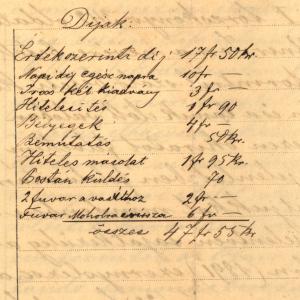 Dijak.
Értékszerinti díj 17 fr 50 kr.
Napi díj egész napra 10 fr —
Irás két kiadvány 3 fr —
Hitelesítés 1 fr 90
Bélyegek 4 fr —
Bemutatás 50 kr
Hiteles másolat 1 fr 95 kr.
Postán küldés 70
2 fuvar a vasúthoz 2 fr —
Fuvar Moholra és vissza 6 fr —
összes 47 fr 55 kr.